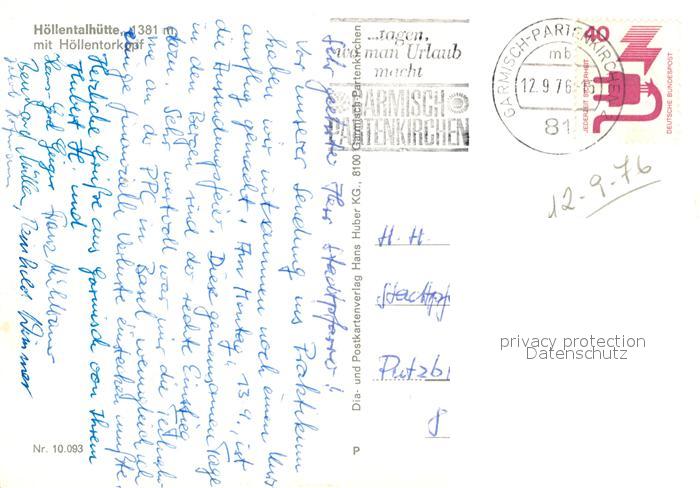 Höllentalhütte, 1381 m
mit Höllentorkopf
...tagen,
wo man Urlaub
macht
GARMISCH
PARTENKIRCHEN
GARMISCH-PARTENKIRCHEN
mb
12.9.76
81
40
JEDERZEIT SICHERHEIT
DEUTSCHE BUNDESPOST
12-9-76
Sehr geehrter Herr Stadtpfarrer!
Vor unserer Sendung ins Praktikum
haben wir mitsammen noch einen
ausflug gemacht. Am Montag, 13.9., ist
die Aussendungsfeier. Diese gemeinsamen Tage
in den Bergen sind der rechte Einstieg
dazu. Sehr wertvoll war mir die
an der PPC in Basel wenngleich ich
einige finanzielle Verluste einstecken mußte.
Herzliche Grüße aus Garmisch von Ihrem
Hubert H. und
Franz Mühlbauer
Bernhard Müller, Reinhold Wimmer
H. H.
Stadtpf
Putzb
8
Dia- und Postkartenverlag Hans Huber KG., 8100 Garmisch-Partenkirchen
privacy protection
Datenschutz
Nr. 10.093
P